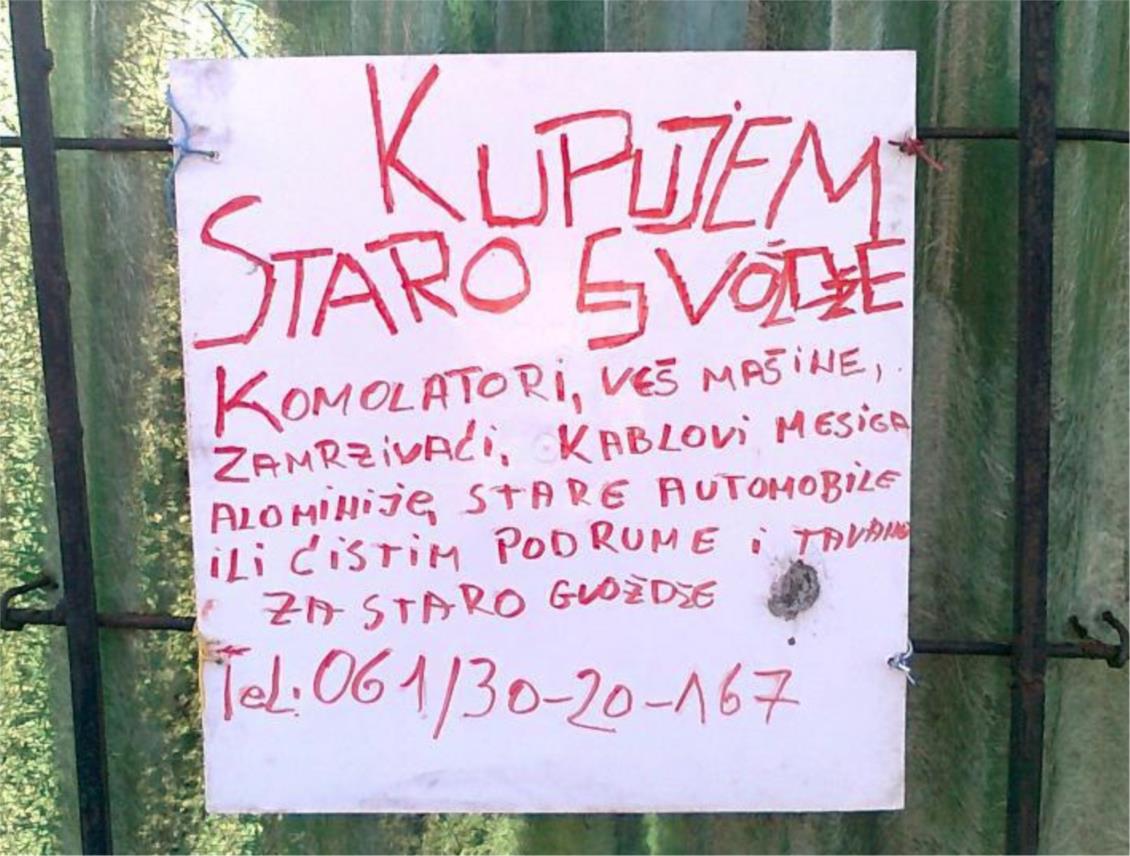 KUPUJEM
STARO GVOŽDŽE
KOMOLATORI, VEŠ MAŠINE,
ZAMRZIVAĆI, KABLOVI MESIGA
ALOMINIJE, STARE AUTOMOBILE
ILI ĆISTIM PODRUME I TAVANE
ZA STARO GVOŽDŽE
TEL. 061/30-20-167